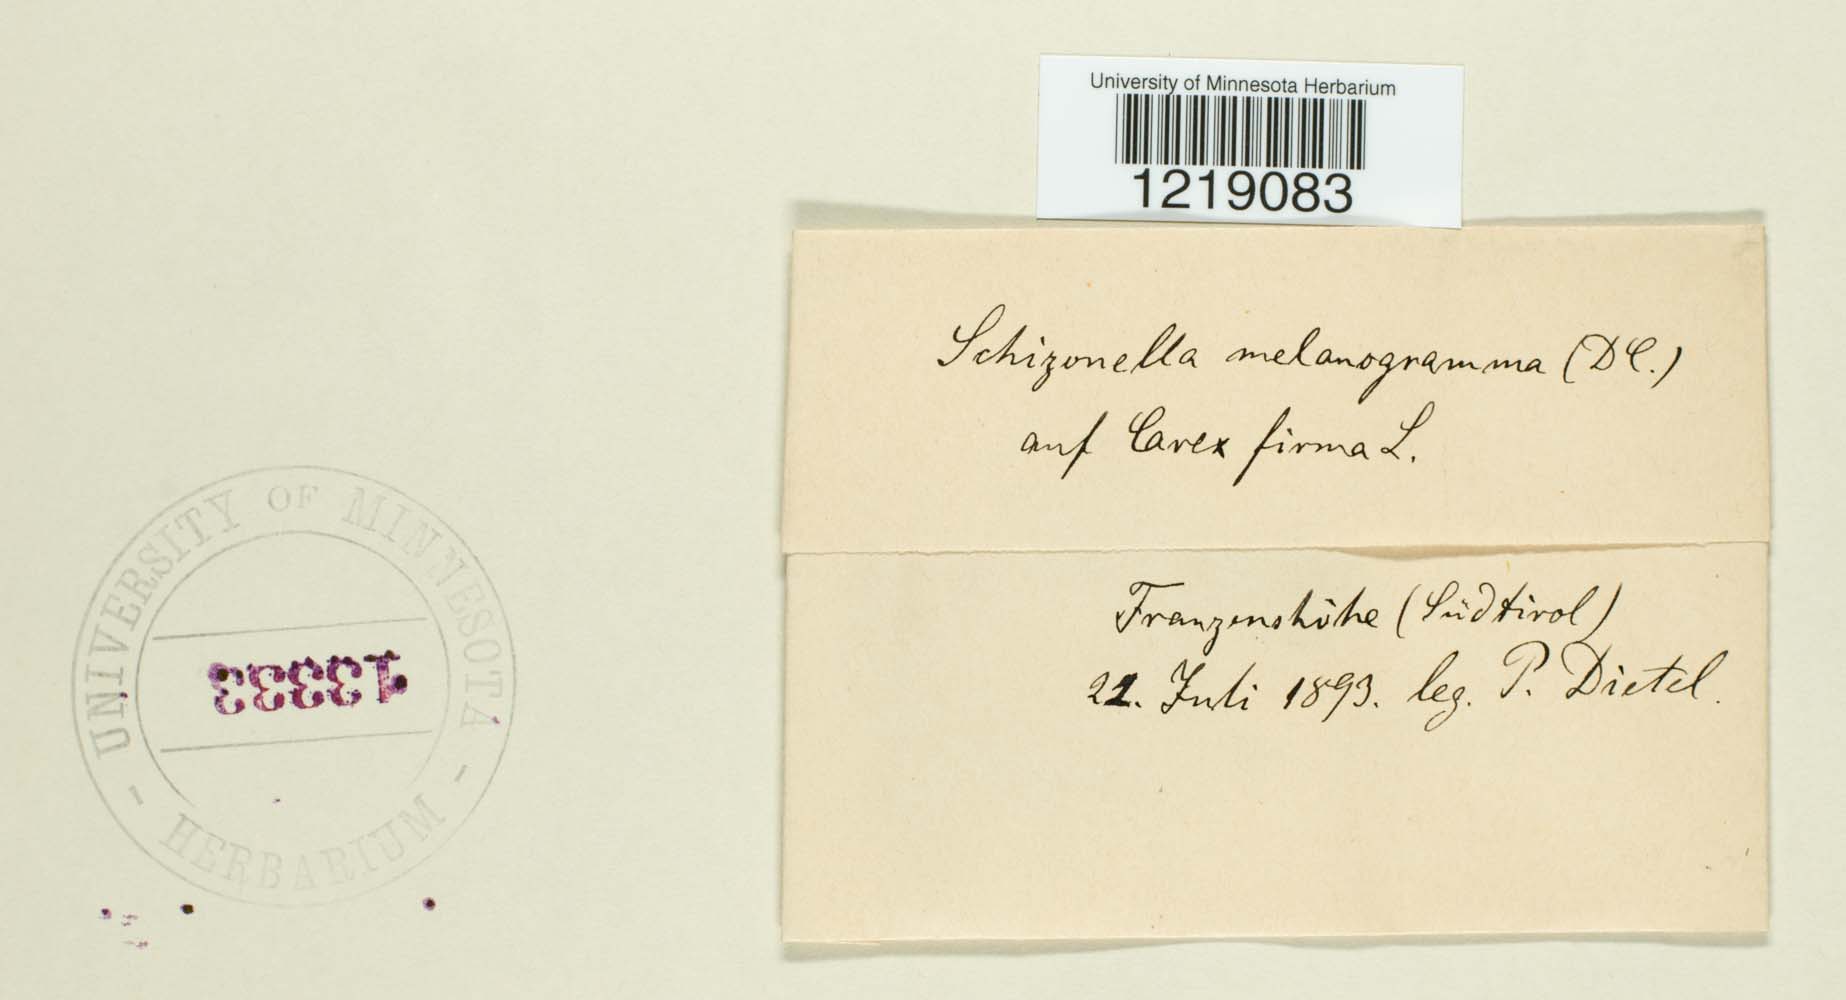 University of Minnesota Herbarium
1219083
Schizonella melanogramma (DC.)
auf Carex firma L.
Franzenshöhe (Südtirol)
Juli 1893. leg. P. Dietel.
UNIVERSITY OF MINNESOTA
- HERBARIUM -
13333